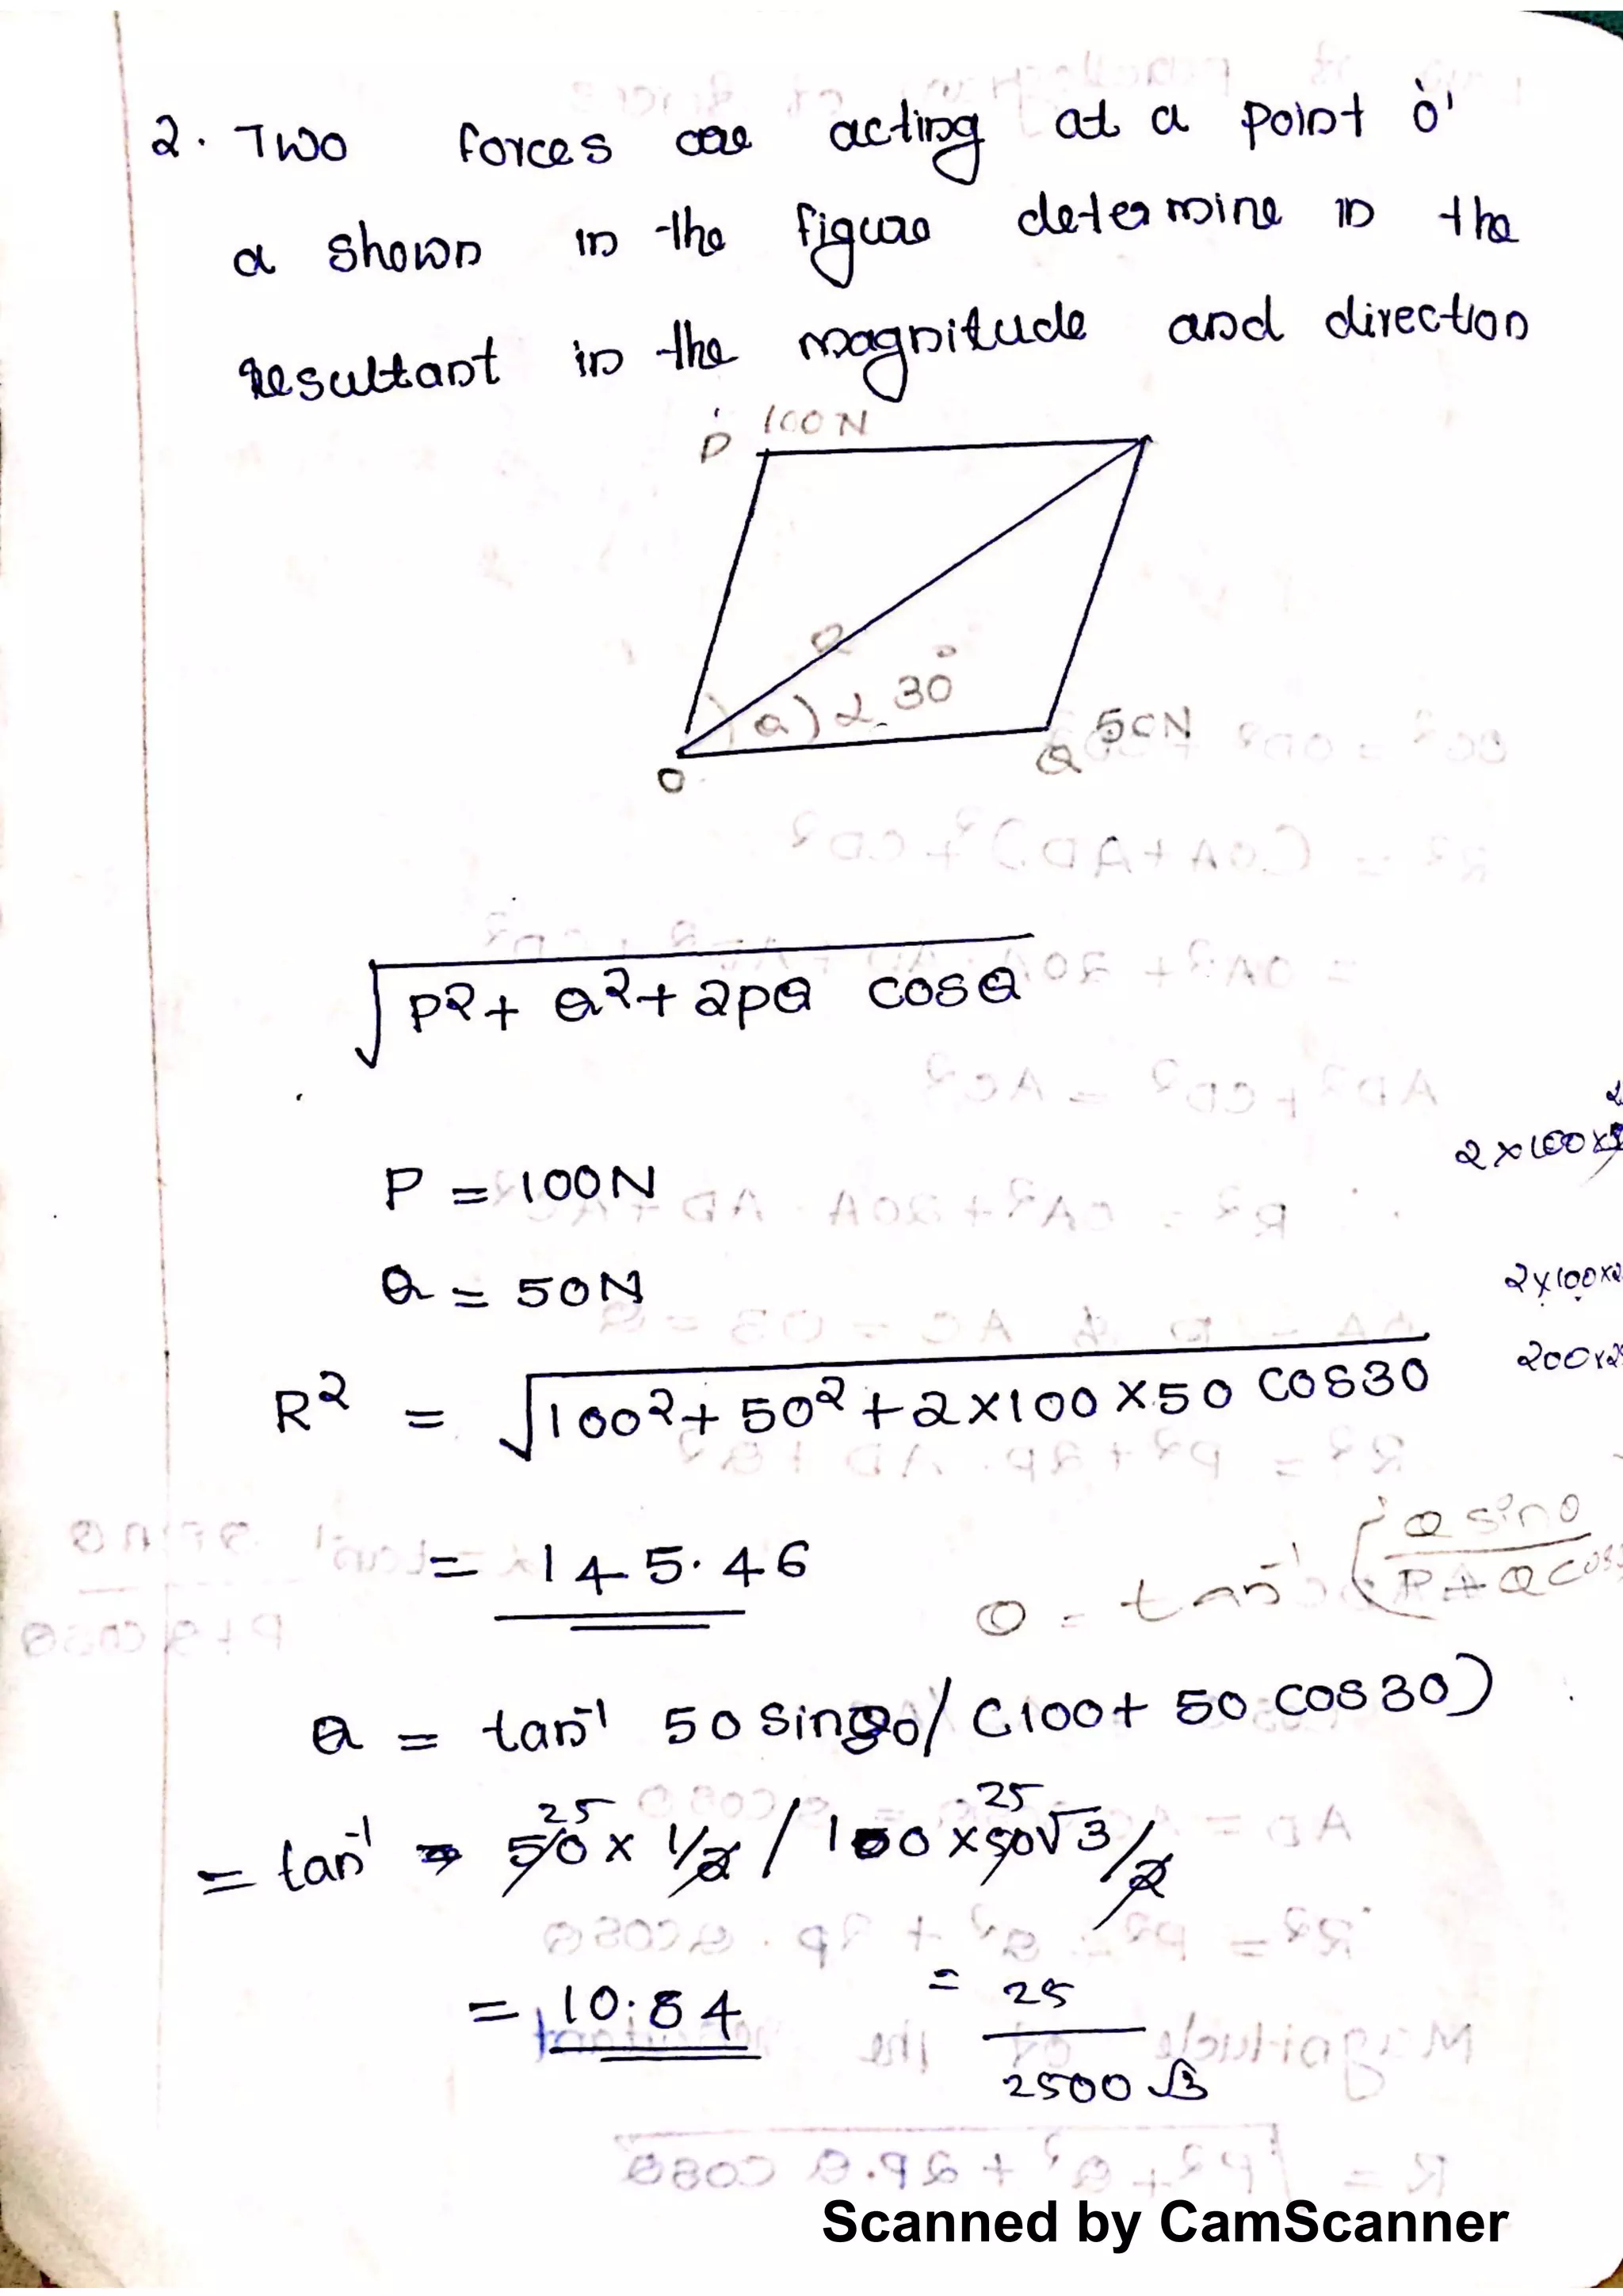 2. Two forces are acting at a point 'O'
a shown in the figure determine in the
resultant in the magnitude and direction
P 100N
R
θ) α 30°
O
Q 50N
√P²+ Q²+ 2PQ cosθ
P = 100N
2×100×
Q = 50N
2×100×2
R² = √100²+ 50²+2×100×50 cos30
200×2
= 145.46
θ = tan⁻¹ (Q sinθ / P+Q cos
θ = tan⁻¹ 50 sin30/ (100+ 50 cos30)
25 25
= tan⁻¹ 50 × 1/2 / 100 ×50√3/2
= 10.84 = 25 / 2500 √3
Scanned by CamScanner